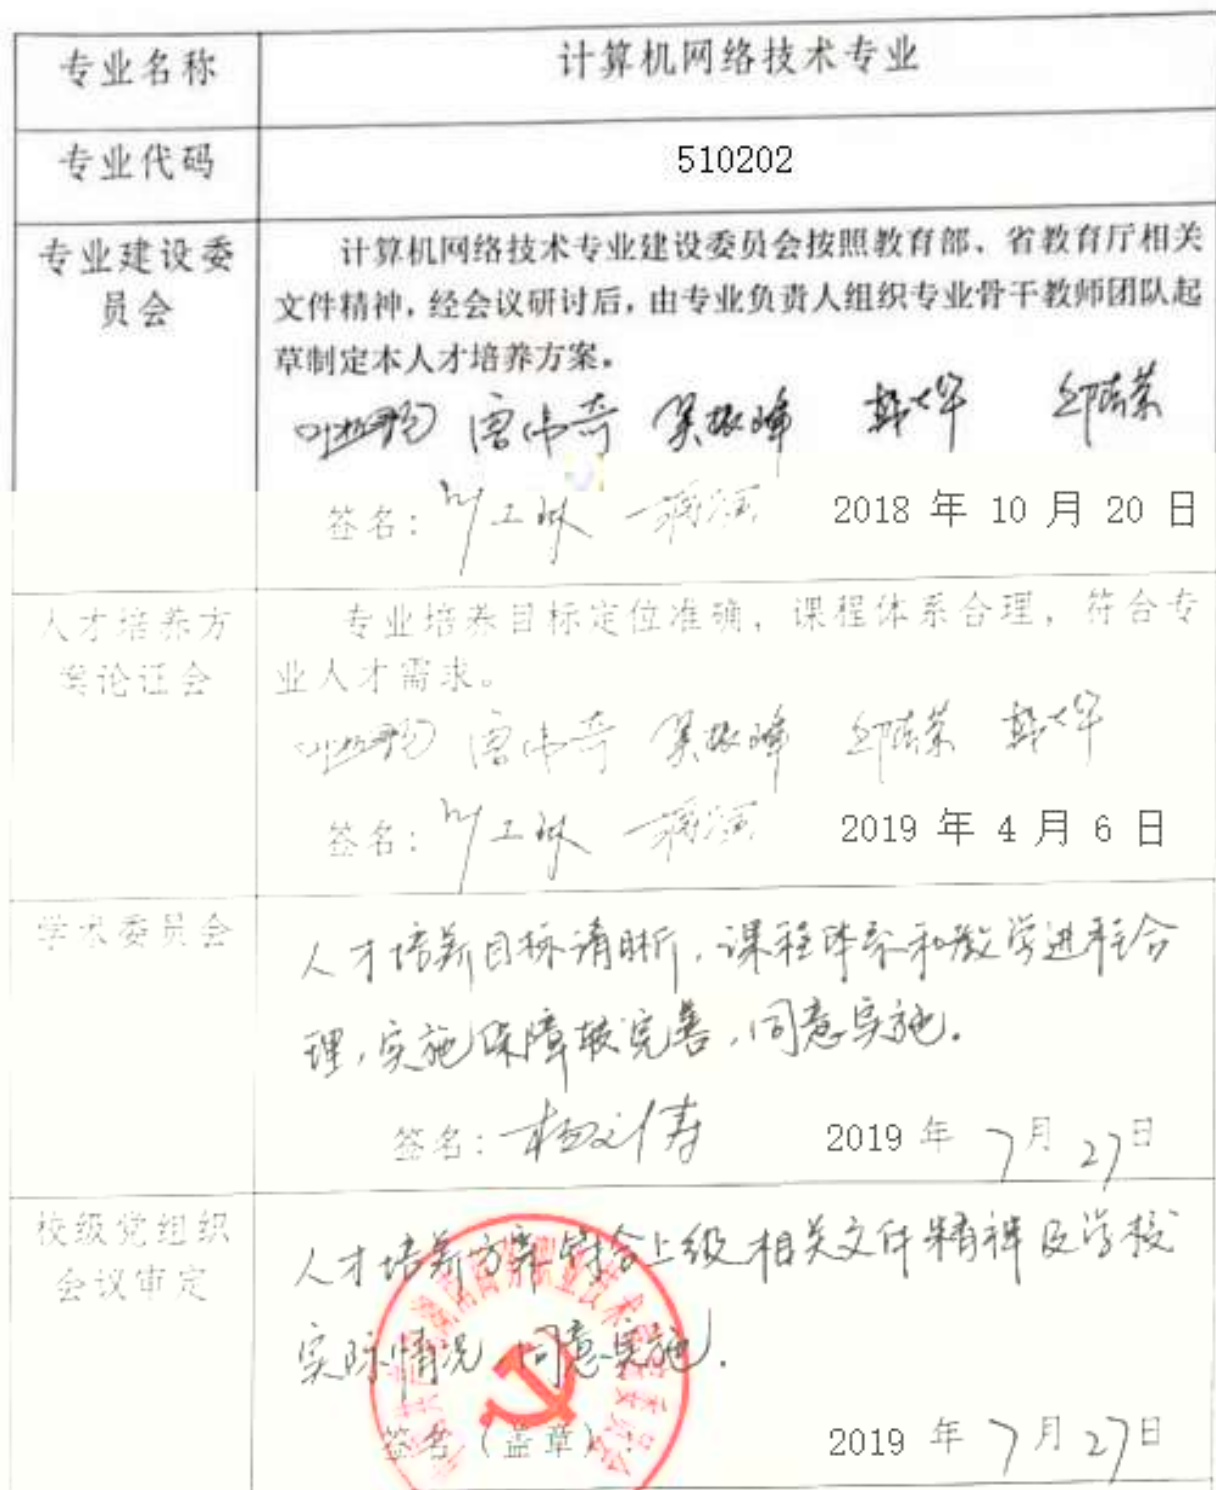 专业名称 计算机网络技术专业
专业代码 510202
专业建设委 计算机网络技术专业建设委员会按照教育部、省教育厅相关
员会 文件精神，经会议研讨后，由专业负责人组织专业骨干教师团队起
草制定本人才培养方案。
签名： 2018 年 10 月 20 日
人才培养方 专业培养目标定位准确，课程体系合理，符合专
案论证会 业人才需求。
签名： 2019 年 4 月 6 日
学术委员会 人才培养目标清晰，课程体系和教学进程合
理，实施保障较完善，同意实施。
签名： 2019 年 7 月 27 日
校级党组织 人才培养方案符合上级相关文件精神及学校
会议审定 实际情况，同意实施。
签名（盖章） 2019 年 7 月 27 日